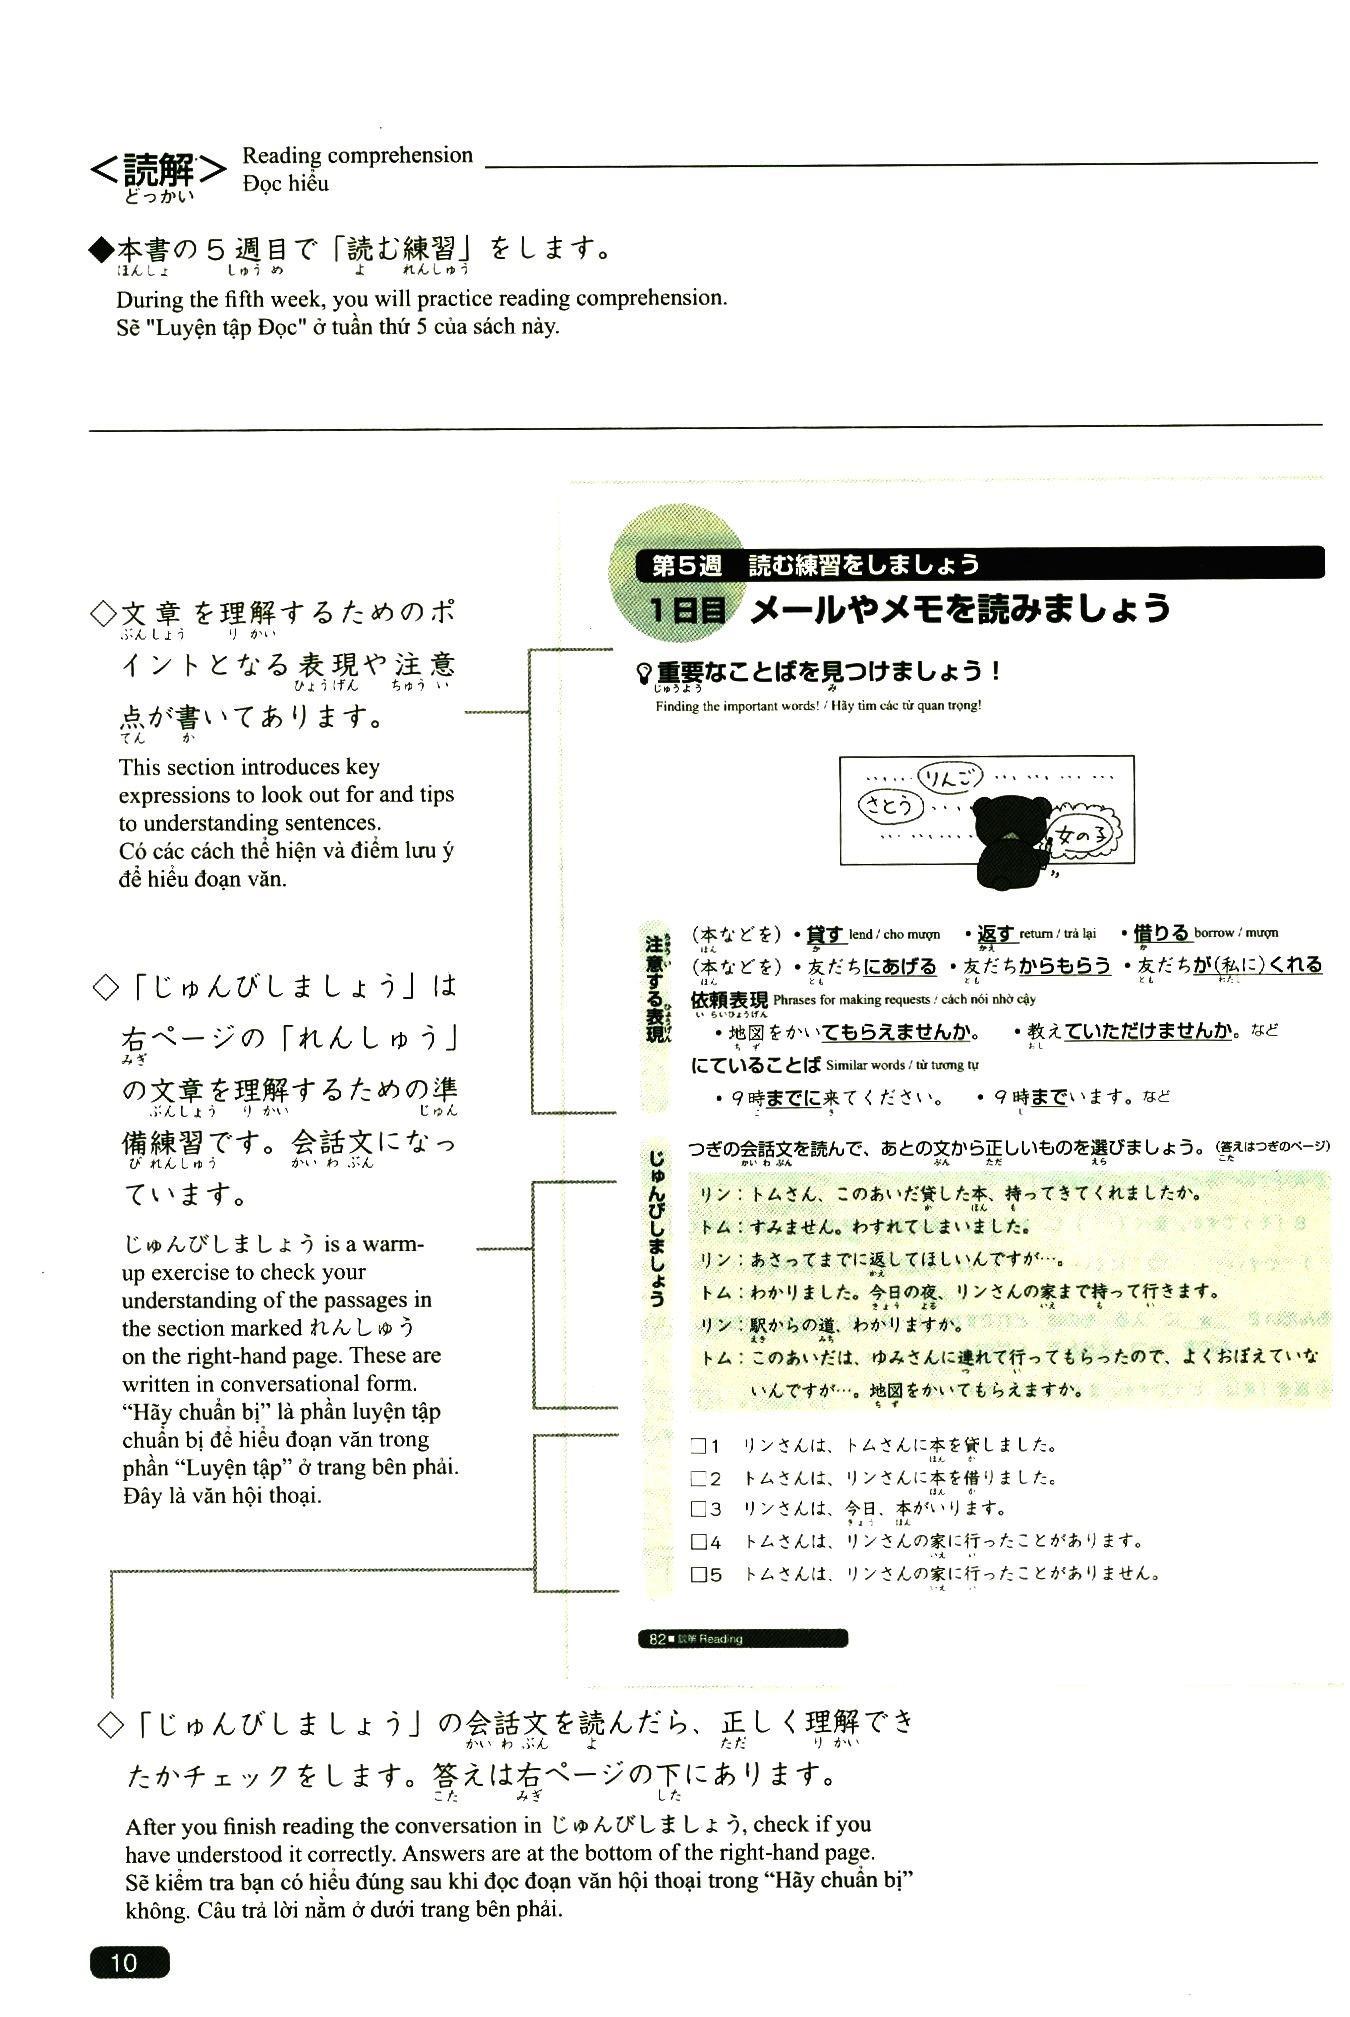 <読解>
どっかい
Reading comprehension
Đọc hiểu
◆本書の5週目で「読む練習」をします。
ほんしょ しゅうめ よ れんしゅう
During the fifth week, you will practice reading comprehension.
Sẽ "Luyện tập Đọc" ở tuần thứ 5 của sách này.
◇文章を理解するためのポ
ぶんしょう りかい
イントとなる表現や注意
ひょうげん ちゅうい
点が書いてあります。
てん か
This section introduces key
expressions to look out for and tips
to understanding sentences.
Có các cách thể hiện và điểm lưu ý
để hiểu đoạn văn.
◇「じゅんびしましょう」は
右ページの「れんしゅう」
みぎ
の文章を理解するための準
ぶんしょう りかい じゅん
備練習です。会話文になっ
び れんしゅう かいわぶん
ています。
じゅんびしましょう is a warm-
up exercise to check your
understanding of the passages in
the section marked れんしゅう
on the right-hand page. These are
written in conversational form.
“Hãy chuẩn bị” là phần luyện tập
chuẩn bị để hiểu đoạn văn trong
phần “Luyện tập” ở trang bên phải.
Đây là văn hội thoại.
第5週 読む練習をしましょう
1日目 メールやメモを読みましょう
重要なことばを見つけましょう!
じゅうよう み
Finding the important words! / Hãy tìm các từ quan trọng!
りんご
さとう
女の子
注意する表現
ちゅうい ひょうげん
(本などを)・貸す lend / cho mượn ・返す return / trả lại ・借りる borrow / mượn
ほん か かえ か
(本などを)・友だちにあげる ・友だちからもらう ・友だちが(私に)くれる
ほん とも とも とも わたし
依頼表現 Phrases for making requests / cách nói nhờ cậy
いらいひょうげん
・地図をかいてもらえませんか。 ・教えていただけませんか。など
ちず おし
にていることば Similar words / từ tương tự
・9時までに来てください。 ・9時までいます。など
じ き じ
じゅんびしましょう
つぎの会話文を読んで、あとの文から正しいものを選びましょう。(答えはつぎのページ)
かいわぶん ぶん ただ えら こた
リン:トムさん、このあいだ貸した本、持ってきてくれましたか。
か ほん も
トム:すみません。わすれてしまいました。
リン:あさってまでに返してほしいんですが…。
かえ
トム:わかりました。今日の夜、リンさんの家まで持って行きます。
きょう よる いえ も い
リン:駅からの道、わかりますか。
えき みち
トム:このあいだは、ゆみさんに連れて行ってもらったので、よくおぼえていな
つ い
いんですが…。地図をかいてもらえますか。
ちず
□1 リンさんは、トムさんに本を貸しました。
ほん か
□2 トムさんは、リンさんに本を借りました。
ほん か
□3 リンさんは、今日、本がいります。
きょう ほん
□4 トムさんは、リンさんの家に行ったことがあります。
いえ い
□5 トムさんは、リンさんの家に行ったことがありません。
いえ い
82■読解 Reading
◇「じゅんびしましょう」の会話文を読んだら、正しく理解でき
かいわぶん よ ただ りかい
たかチェックをします。答えは右ページの下にあります。
こた みぎ した
After you finish reading the conversation in じゅんびしましょう, check if you
have understood it correctly. Answers are at the bottom of the right-hand page.
Sẽ kiểm tra bạn có hiểu đúng sau khi đọc đoạn văn hội thoại trong “Hãy chuẩn bị”
không. Câu trả lời nằm ở dưới trang bên phải.
10